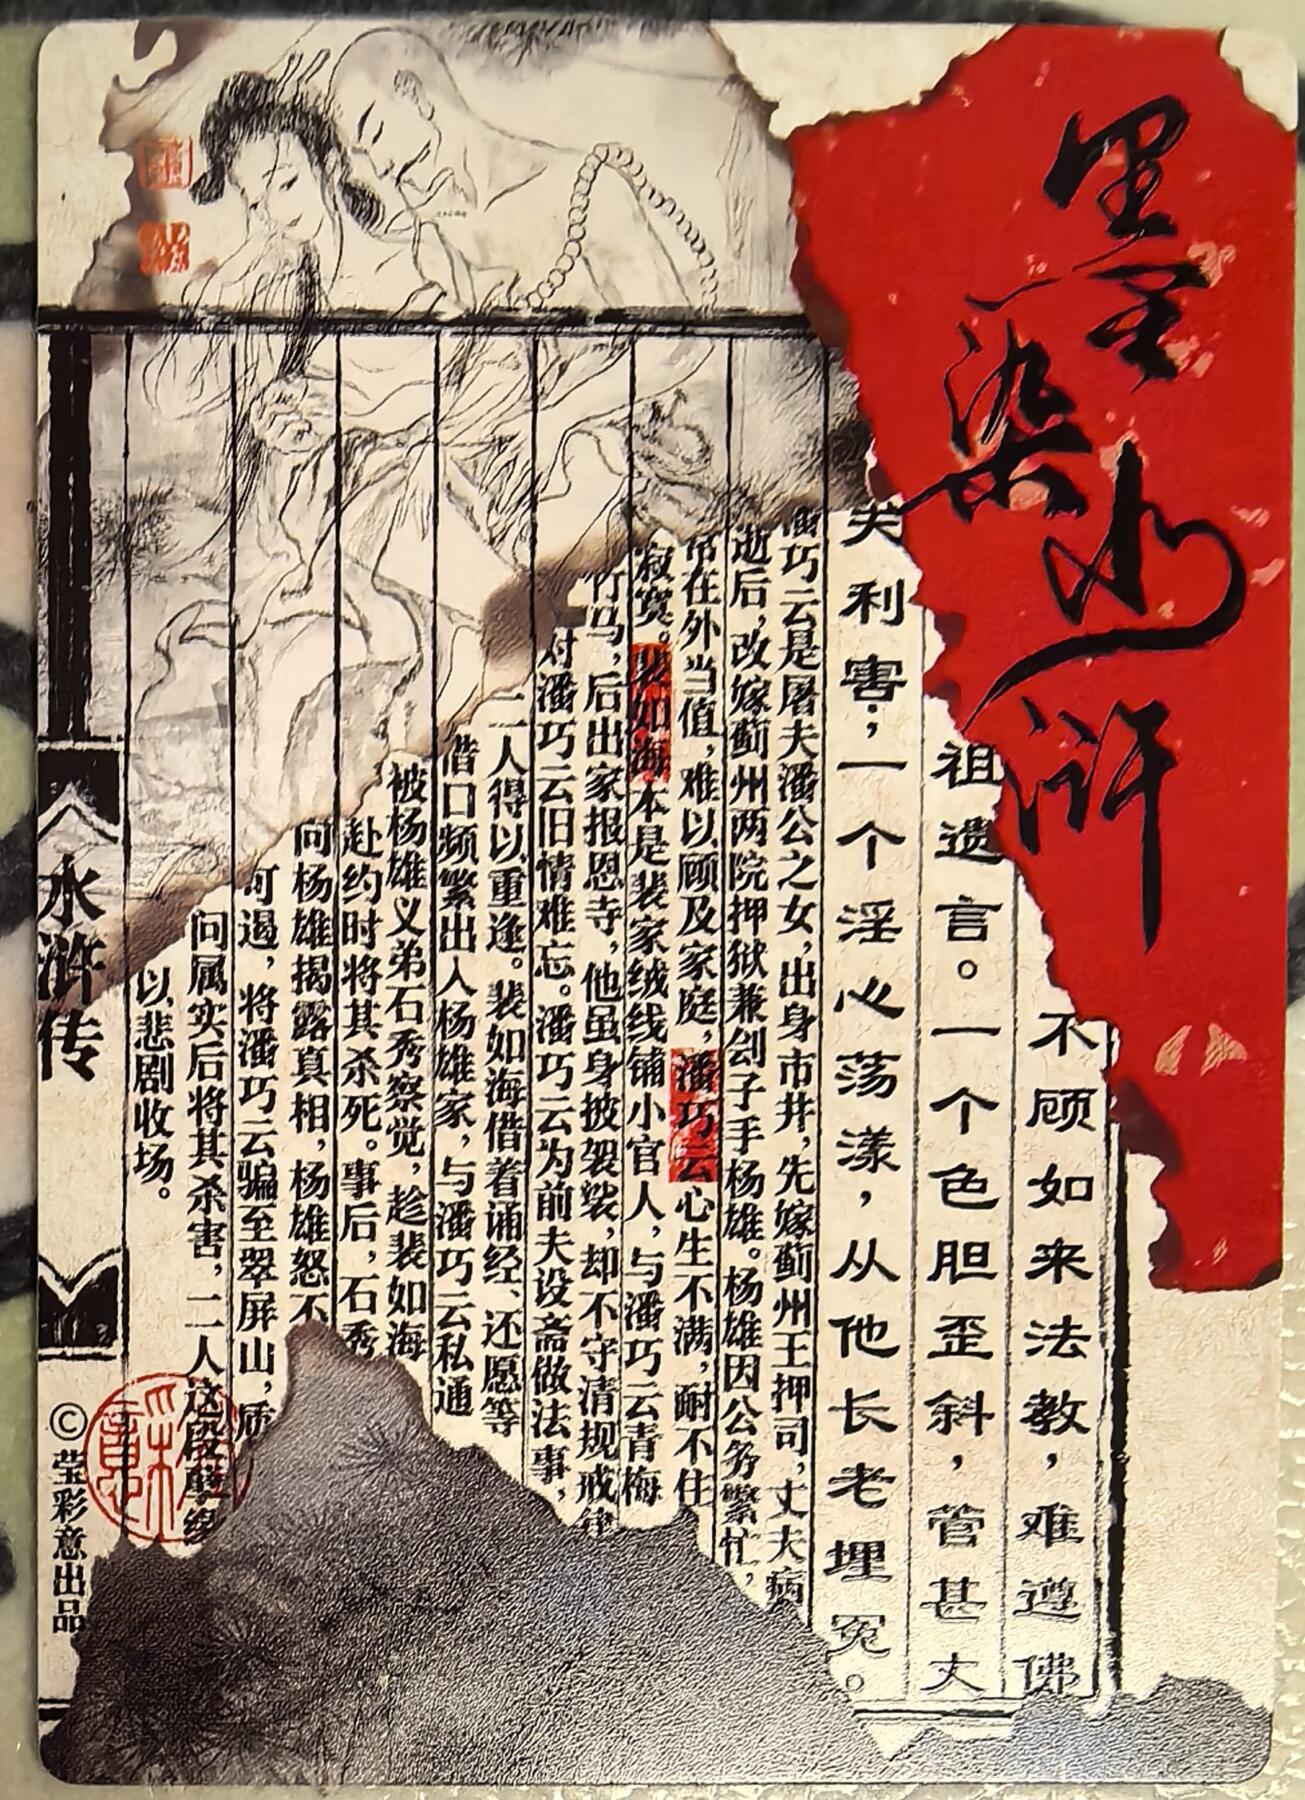 墨染水浒
不顾如来法教，难遵佛
祖遗言。一个色胆歪斜，管甚丈
夫利害；一个淫心荡漾，从他长老埋冤。
潘巧云是屠夫潘公之女，出身市井，先嫁蓟州王押司，丈夫病
逝后，改嫁蓟州两院押狱兼刽子手杨雄。杨雄因公务繁忙，
常在外当值，难以顾及家庭，潘巧云心生不满，耐不住
寂寞。裴如海本是裴家绒线铺小官人，与潘巧云青梅
竹马，后出家报恩寺，他虽身披袈裟，却不守清规戒律
对潘巧云旧情难忘。潘巧云为前夫设斋做法事，
二人得以重逢。裴如海借着诵经、还愿等
借口频繁出入杨雄家，与潘巧云私通
被杨雄义弟石秀察觉，趁裴如海
赴约时将其杀死。事后，石秀
向杨雄揭露真相，杨雄怒不
可遏，将潘巧云骗至翠屏山，质
问属实后将其杀害，二人这段孽缘
以悲剧收场。
水浒传
©莹彩意出品